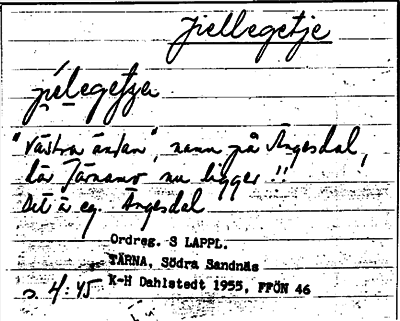 jiellegetje
jielegetje
"Västra ändan", namn på Ängesdal,
där Tärnamo nu ligger!!
Det är eg. Ängesdal
Ordreg. S LAPPL.
TÄRNA, Södra Sandnäs
s. 4:45 K-H Dahlstedt 1955, FFÖN 46